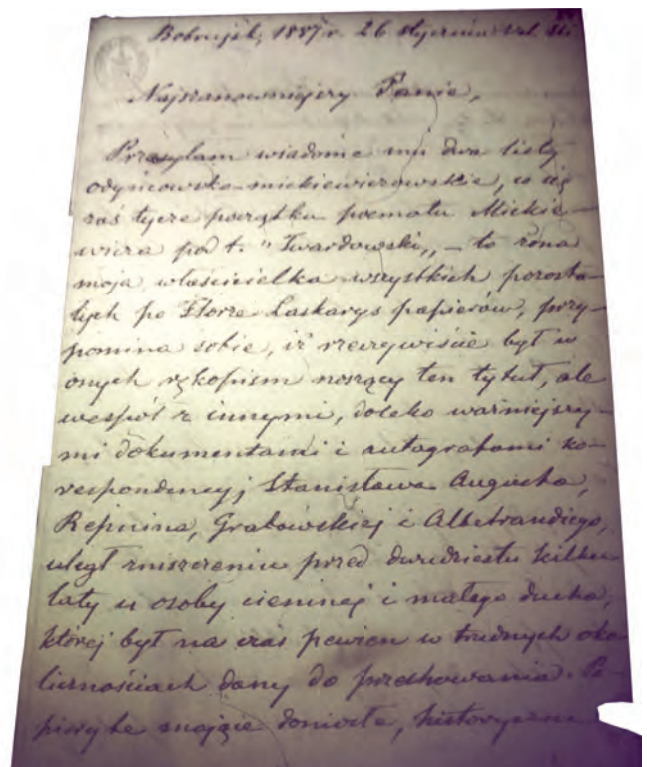 Bobrujsk, 1887 r. 26 stycznia v. st.
Najszanowniejszy Panie,
Przesyłam wiadome mu dwa listy
odyńcowsko-mickiewiczowskie, co się
zaś tycze początku poematu Mickie-
wicza pod t. "Twardowski„ – to żona
moja właścicielka wszystkich pozosta-
łych po Florze Laskarys papierów, przy-
pomina sobie, iż rzeczywiście był w
onych rękopism noszący ten tytuł, ale
wespół z innymi, daleko ważniejszy-
mi dokumentami i autografami ko-
respondencyj Stanisława Augusta,
Repnina, Grabowskiej i Albetrandiego,
uległ zniszczeniu przed dwudziestu kilku
laty u osoby ciemnej i małego ducha,
której był na czas pewien w trudnych oko-
licznościach dany do przechowania. Pa-
piery te mające doniosłe, historyczne